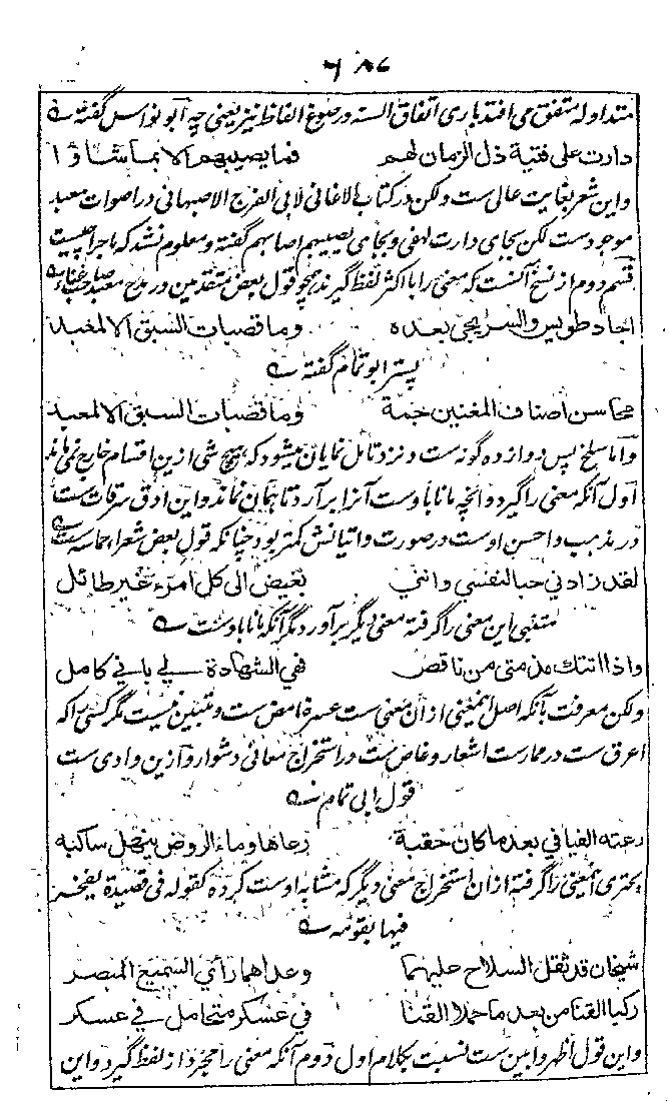 ۶۸۷
متداوله متفق می افتد باری اتفاق السنه در صوغ الفاظ نیز یعنی چه ابو نواس گفته
دارت علی فتیة ذل الزمان لهم فما یصیبهم الا بما شاؤا
واین شعر بغایت عالی ست ولکن در کتاب الاغانی لابی الفرج الاصبهانی در اصوات معبد
موجود ست لکن بجای دارت لهفی و بجای یصیبهم اصابهم گفته و معلوم نشد که ماجرا چیست
قسم دوم از نسخ آنست که معنی را با اکثر لفظ گیرند همچو قول بعض متقدمین در مدح معبد صاحب غناء
اجاد طویس والسریجی بعده وما قصبات السبق الا لمعبد
پستر ابو تمام گفته
محاسن اصناف المغنین جمة وما قصبات السبق الا لمعبد
واما سلخ پس دوازده گونه ست و نزد تامل نمایان میشود که هیچ شی ازین اقسام خارج نمی ماند
اول آنکه معنی را گیرد و آنچه مانا با وست آنرا برآرد تا همان نماند و این ادق سرقات ست
در مذهب و احسن اوست در صورت و اتیانش کمتر بود چنانکه قول بعض شعراء حماسه ست
لقد زادنی حبا لنفسی واننی بغیض الی کل امرء غیر طائل
متنبی این معنی را گرفته معنی دیگر برآورد مگر آنکه مانا با وست
واذا اتتک مذمتی من ناقص فهی الشهادة لی بانی کامل
ولکن معرفت بآنکه اصل اینمعنی از آن معنی ست عسرة غامض ست و متبین نیست مگر کسی را که
اعرق ست در ممارست اشعار و غاص ست در استخراج معانی دشوار و ازین وادی ست
قول ابی تمام
رعته الفیافی بعد ما کان حقبة رعاها وماء الروض ینهل ساکبه
بحتری اینمعنی را گرفته ازان استخراج معنی دیگر که مشابه اوست کرده کقوله فی قصیدة یفخر
فیها بقومه
شیخان قد ثقل السلاح علیهما وعداهما رای السمیع المبصر
رکبا القنا من بعد ما حملا القنا فی عسکر متحامل فی عسکر
واین قول اظهر و ابین ست نسبت بکلام اول دوم آنکه معنی را مجرد از لفظ گیرد و این